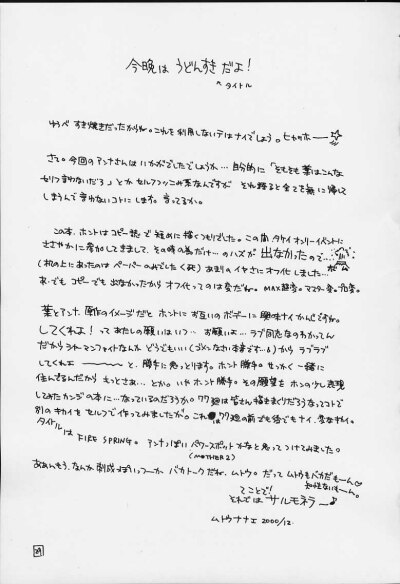 今晩は うどんすき だよ!
^タイトル
ゆうべ すき焼きだったからね。これを利用しないテはナイでしょう。ヒャッホー
さて。今回のアンナさんは いかがでしたでしょうか… 自分的に「そもそも葉はこんな
セリフ言わないだろ」とか セルフツッこみ系なんですが それ語ると全てを無に帰して
しまうんで言わないコトにします。言ってるか。
この本、ホントはコピー誌で 短めに描くつもりでした。この間タケイオンリーイベントに
ささやかに参加してきまして、その時の為だけ…のハズが 出なかったので…
(机の上にあったのは ペーパーのみでした(死)) あまりのイヤさにオフ化しました…
あ、でも コピーでも 出なかったから オフ化ってのは変だな。
葉とアンナ、原作のイメージだと ホントにお互いのボディーに興味ナイかんじですね。
してくれよ! って あたしの願いはいつ… お願いよ… ラブ同志なのわかってん
だから シャーマンファイトなんか どうでもいい(ゴメンなさい本書です…) から ラブラブ
してくれェ〜〜〜 と、勝手に思っとります。ホント勝手。せっかく一緒に
住んでるんだから もっとさぁ… とかね。いや ホント勝手。その願望を ホンの少し表現
してみたカンジの本に…なっているのだろうか。77廻は皆さん描きまくりだろうなってコトで
別のキカイを セルフで作ってみましたが。これは77廻の前でも後でもナイ、変なキカイ。
タイトルは FIRE SPRING。 アンナっぽい パワースポットかなと思ってつけてみました。
(MOTHER2)
ああんもう、なんか 剣成っぽいっつーか バカトークだね、ムトウ。だって ムトウもバカだもーん。
知性ないもーん。
てことで!
それでは サルモネラー♪
ムトウナナエ 2000/12.
29